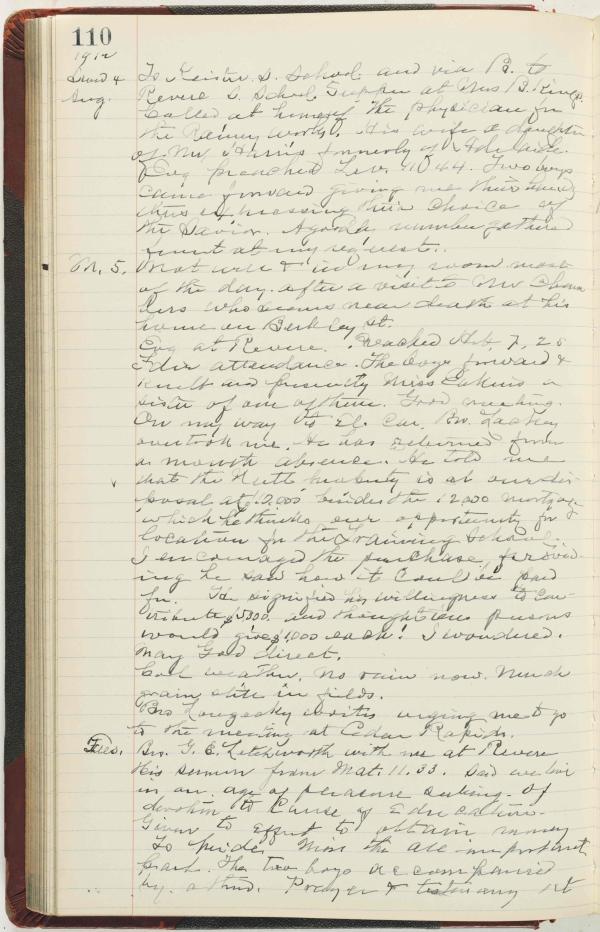 110
1912
Lord 4 To S. School and via B. to
Aug. Revere S. School Supper at Mrs B. Kings.
Called at home of the physician for
the Rainey works. His wife a daughter
of Mr Harris formerly of Adelaide.
Evg preached Lev. 11 44. Two boys
came forward giving me their hand
thus expressing their choice of
the Savior. A good number gathered
front at my request.
M. 5. Not well & in my room most
of the day after a visit to Mr
who seems near death at his
home on Berkley St.
Evg at Revere. Preached Heb. 7, 25
Fair attendance. The boys forward &
knelt and presently Miss a
sister of one of them. Good meeting.
On my way to El. Car, Bro. Lackey
overtook me. He has returned from
a month absence. He told me
that the property is at our dis-
posal at 10,000 besides the 12000 mortgage
which he thinks our opportunity for
location for the training school.
I encouraged the purchase provid-
ing he saw how it could be paid
for. He signified his willingness to con-
tribute $5300. and thought ten persons
would give $1,000 each! I wondered.
May God direct.
Cool weather, no rain now. Much
grain still in fields.
Bro writes urging me to go
to the meeting at Cedar Rapids.
Tues. Bro. G. E. Letchworth with me at Revere
His sermon from Mat. 11. 33. Said we live
in an age of pleasure seeking. Of
devotion to Cause of Education.
Given to effort to obtain money
To Miss the all important
part. The two boys accompanied
by a third. Prayer & testimony at